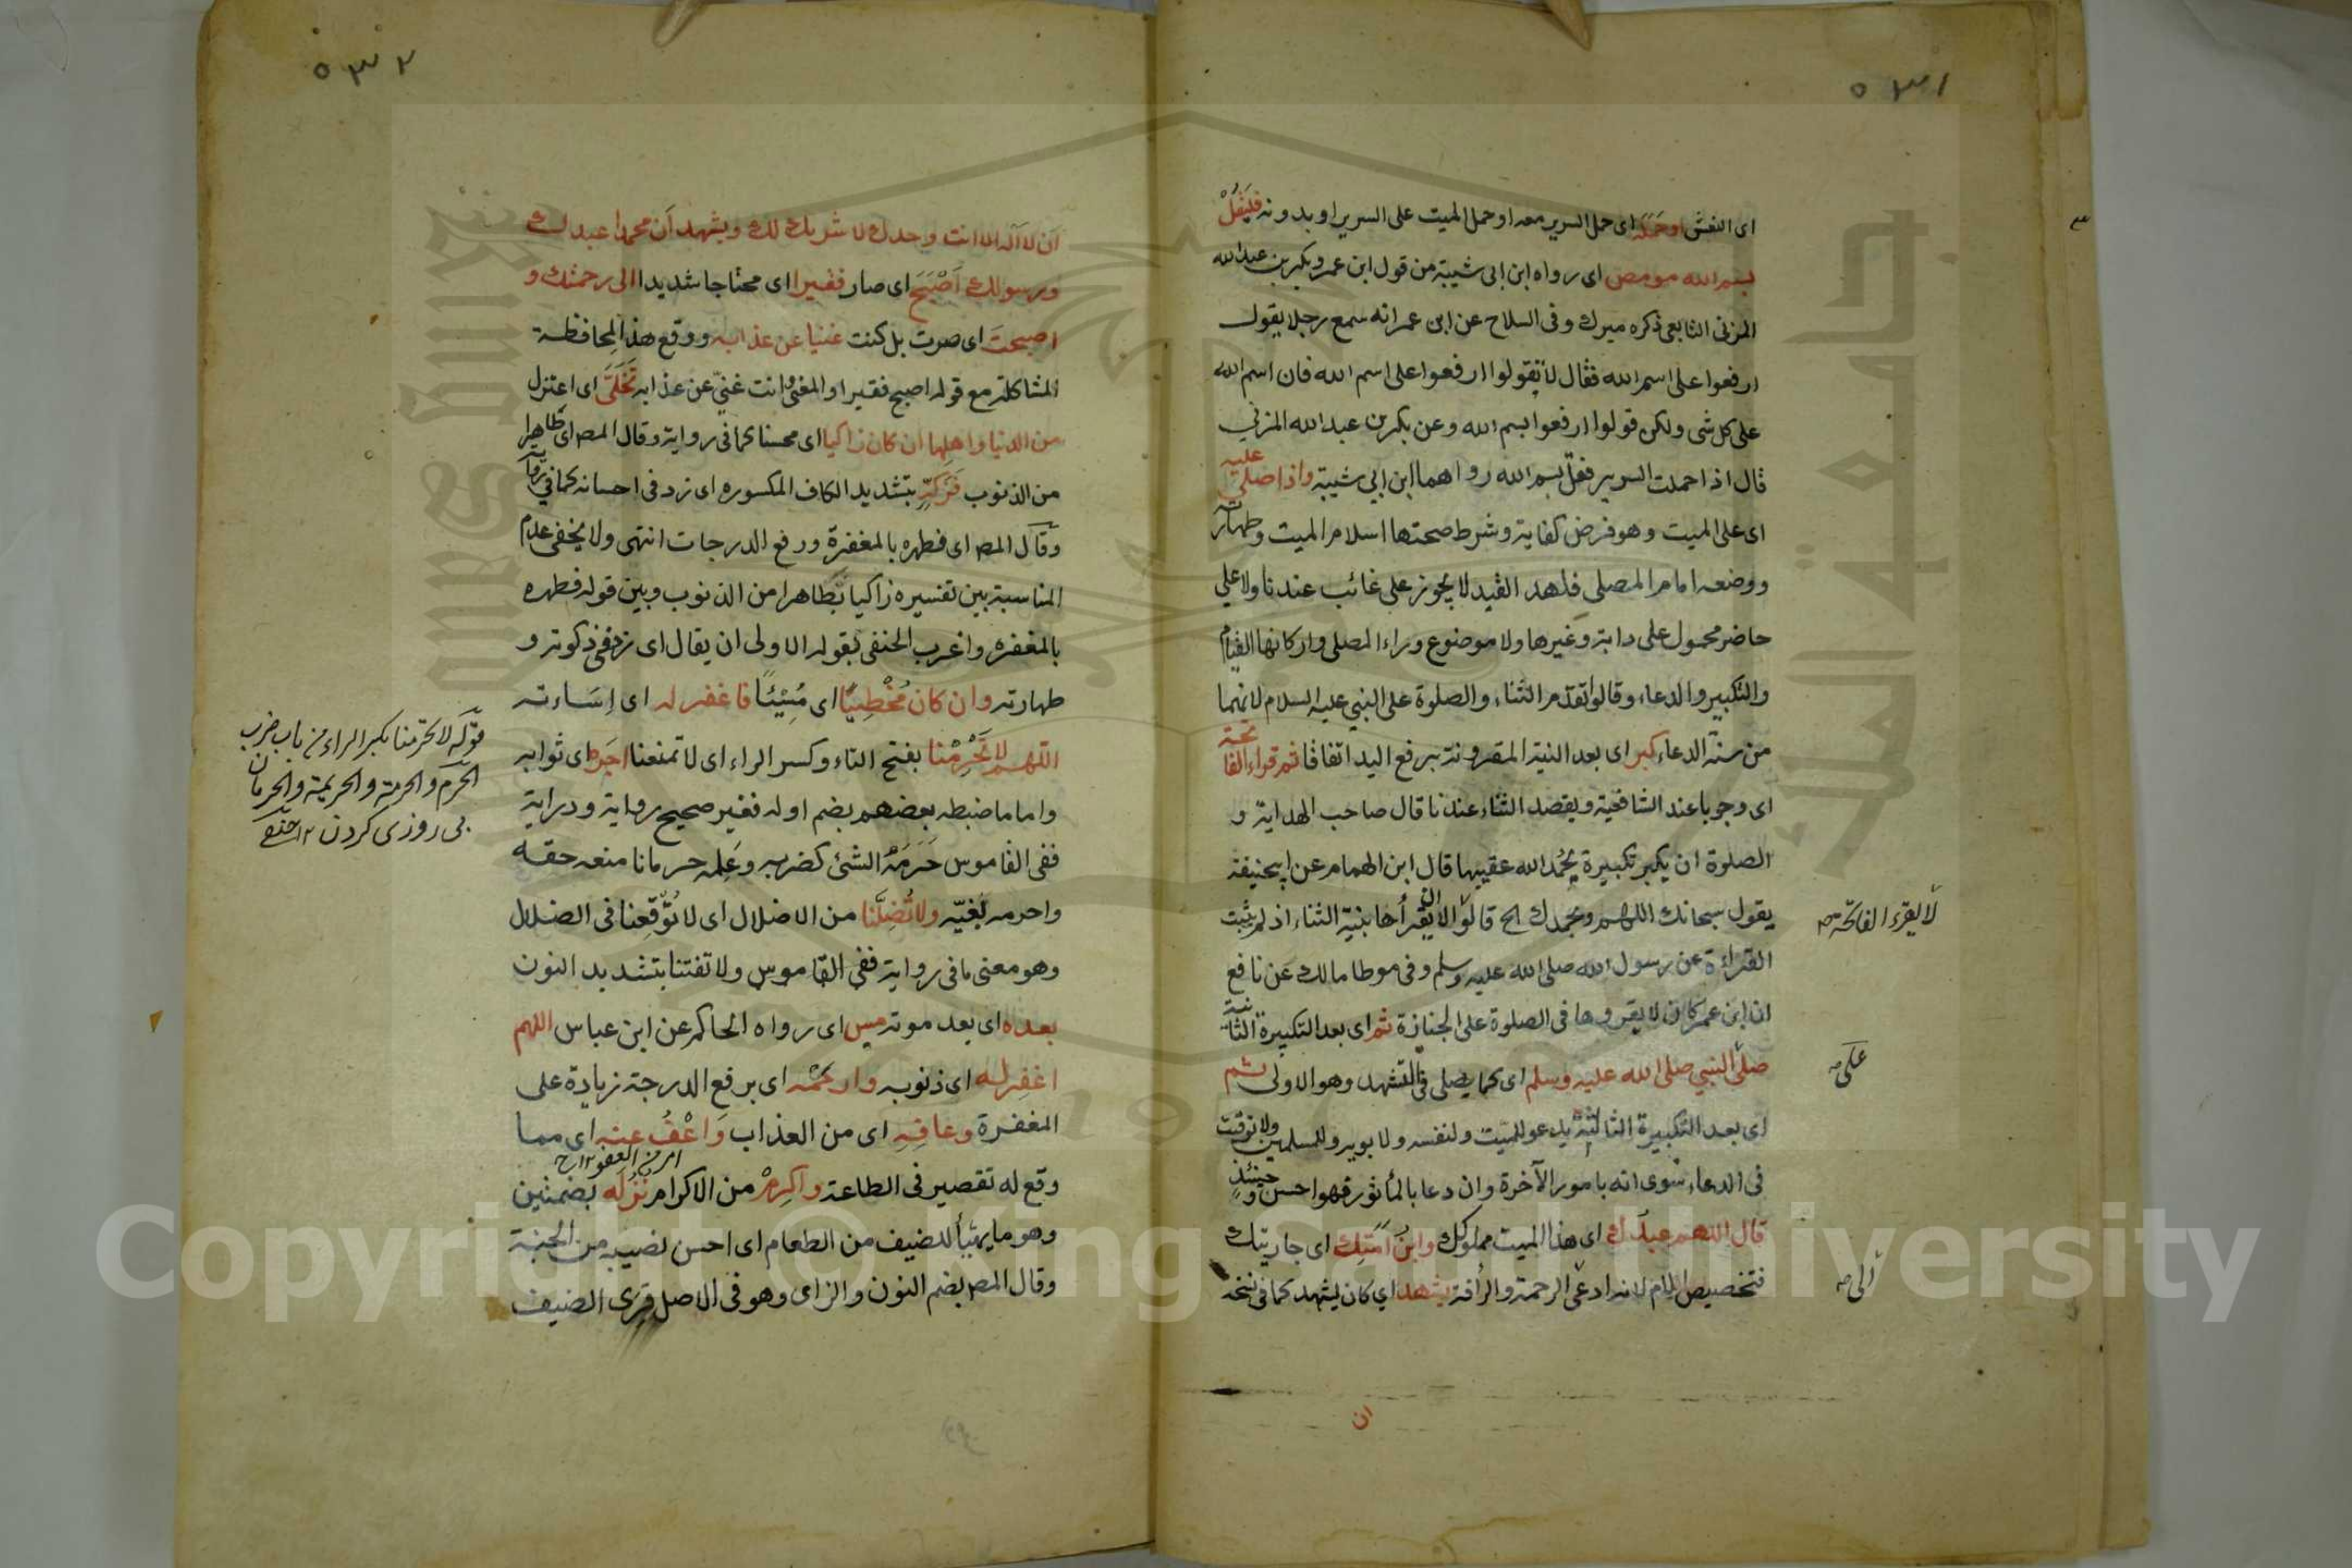 ٥٣١
اى النعش اوحمله اى حمل السرير معه او حمل الميت على السرير او بدونه فليقل
بسم الله مو مص اى رواه ابن ابى شيبة من قول ابن عمر وبكر بن عبد الله
المزنى التابعى ذكره ميرك وفى السلاح عن ابن عمر انه سمع رجلا يقول
ارفعوا على اسم الله فقال لا تقولوا ارفعوا على اسم الله فان اسم الله
على كل شى ولكن قولوا ارفعوا بسم الله وعن بكر بن عبد الله المزني
قال اذا حملت السرير فقل بسم الله رواهما ابن ابي شيبة واذا صلى عليه
اى على الميت وهو فرض كفاية وشرط صحتها اسلام الميت وطهارته
ووضعه امام المصلى فلهذا القيد لا يجوز على غائب عندنا ولا علي
حاضر محمول على دابة وغيرها ولا موضوع وراء المصلى واركانها القيام
والتكبير والدعاء وقالوا تقدم الثناء والصلوة على النبي عليه السلام لانهما
من سنة الدعاء كبر اى بعد النية المقرونة برفع اليد اتفاقا ثم قراء الفاتحة
اى وجوبا عند الشافعية ويقصد الثناء عندنا قال صاحب الهداية و
الصلوة ان يكبر تكبيرة يحمد الله عقيبها قال ابن الهمام عن ابيحنيفة
يقول سبحانك اللهم وبحمدك الخ قالوا لا يقرأها بنية الثناء اذ لم يثبت
لا يقرء الفاتحة صح
القراءة عن رسول الله صلى الله عليه وسلم وفى موطا مالك عن نافع
ان ابن عمر كان لا يقروها فى الصلوة على الجنازة ثم اى بعد التكبيرة الثانية
صلى النبي صلى الله عليه وسلم اى كما يصلى فى التشهد وهو الاولى ثم
على صح
اى بعد التكبيرة الثالثة يدعو للميت ولنفسه ولابويه وللمسلمين ولا توقيت
فى الدعاء سوى انه بامور الآخرة وان دعا بالمأثور فهو احسن وحينئذ
قال اللهم عبدك اى هذا الميت مملوكك وابن امتك اى جاريتك
فتخصيص الام لانه ادعى الرحمة والرأفة يشهد اي كان يشهد كما فى نسخة
الى صح
ان
٥٣٢
ان لا اله الا انت وحدك لا شريك لك ويشهد ان محمدا عبدك
ورسولك اصبح اى صار فقيرا اى محتاجا شديدا الى رحمتك و
اصبحت اى صرت بل كنت غنيا عن عذابه ووقع هذا لمحافظة
المشاكلة مع قوله اصبح فقيرا او المغنى وانت غني عن عذابه تخلى اى اعتزل
من الدنيا واهلها ان كان زاكيا اى محسنا كما فى رواية وقال المص اى طاهرا
من الذنوب فزكه بتشديد الكاف المكسوره اى زد فى احسانه كما في رواية
وقال المص اى فطهره بالمغفرة ورفع الدرجات انتهى ولا يخفى عدم
المناسبة بين تفسيره زاكيا بطاهرا من الذنوب وبين قوله فطهره
بالمغفره واغرب الحنفى بقوله الاولى ان يقال اى زد فى زكوته و
طهارته وان كان مخطيئا اى مسيئا فاغفر له اى إساءته
اللهم لا تحرمنا بفتح التاء وكسر الراء اى لا تمنعنا اجره اى ثوابه
واما ما ضبطه بعضهم بضم اوله فغير صحيح رواية ودراية
ففى القاموس حرمه الشئ كضربه وعلمه حرمانا منعه حقه
واحرمه لغيه ولا تضلنا من الاضلال اى لا توقعنا فى الضلال
وهو معنى ما فى رواية ففى القاموس ولا تفتنا بتشديد النون
بعده اى بعد موته مس اى رواه الحاكم عن ابن عباس اللهم
اغفر له اى ذنوبه وارحمه اى برفع الدرجة زيادة على
المغفرة وعافه اى من العذاب واعف عنه اى مما
امر من العفو ١٢ ح
وقع له تقصير فى الطاعة واكرم من الاكرام نزله بضمتين
وهو ما يهيأ للضيف من الطعام اى احسن نصيبه من الجنة
وقال المص بضم النون والزاى وهو فى الاصل قرى الضيف
قوله لا تحرمنا بكسر الراء من باب ضرب
الحرم والحرمة والحريمة والحرمان
بى روزى كردن ١٢
Copyright © King Saud University